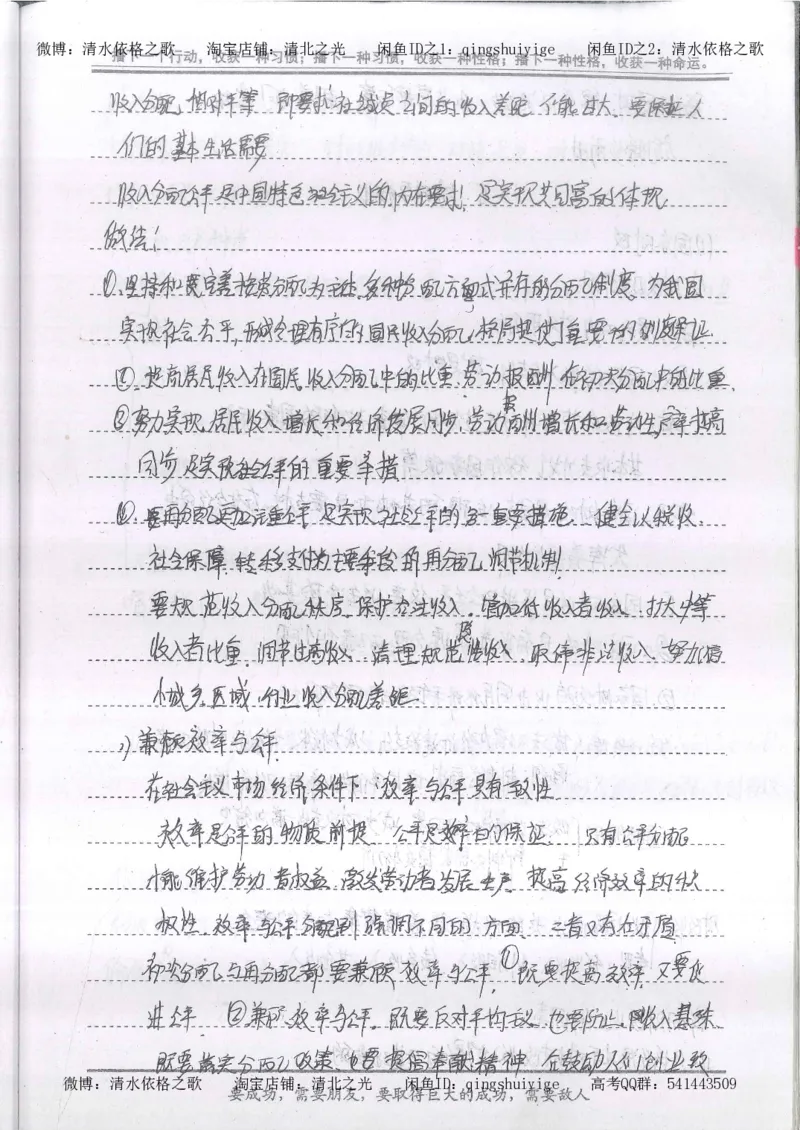 微博：清水依格之歌 淘宝店铺：清北之光 闲鱼ID之1：qingshuiyige 闲鱼ID之2：清水依格之歌
播下一个行动，收获一种习惯；播下一种习惯，收获一种性格；播下一种性格，收获一种命运。
收入分配相对平等，即要求社会成员之间的收入差距不能过大，要保证人
们的基本生活需要
收入分配公平是中国特色社会主义的内在要求，是实现共同富裕的体现
做法：
①坚持和完善按劳分配为主体，多种分配方式并存的分配制度，为我国
实现社会公平，形成合理有序的国民收入分配格局提供了重要的制度保证
①提高居民收入在国民收入分配中的比重，劳动报酬在初次分配中的比重，
②努力实现居民收入增长和经济发展同步，劳动报酬增长和劳动生产率提高
同步是实现社会公平的重要举措
再分配更加注重公平是实现社会公平的另一重要措施，健全以税收、
社会保障、转移支付为主要手段的再分配调节机制
要规范收入分配秩序，保护合法收入，增加低收入者收入，扩大中等
收入者比重，调节过高收入，清理规范隐性收入，取缔非法收入，努力缩
小城乡、区域、行业收入分配差距
兼顾效率与公平
在社会主义市场经济条件下，效率与公平具有一致性
效率是公平的物质前提，公平是效率的保证，只有公平分配
才能维护劳动者权益，激发劳动者发展生产、提高经济效率的积
极性，效率与公平分别强调不同的方面，二者又存在矛盾
初次分配与再分配都要兼顾效率与公平，①既要提高效率，又要促
进公平 ②兼顾效率与公平，既要反对平均主义，也要防止收入悬殊
既要落实分配政策，也要提倡奉献精神，在鼓励人们创业致
微博：清水依格之歌 淘宝店铺：清北之光 闲鱼ID：qingshuiyige 高考QQ群：541443509
要成功，需要朋友，要取得巨大的成功，需要敌人